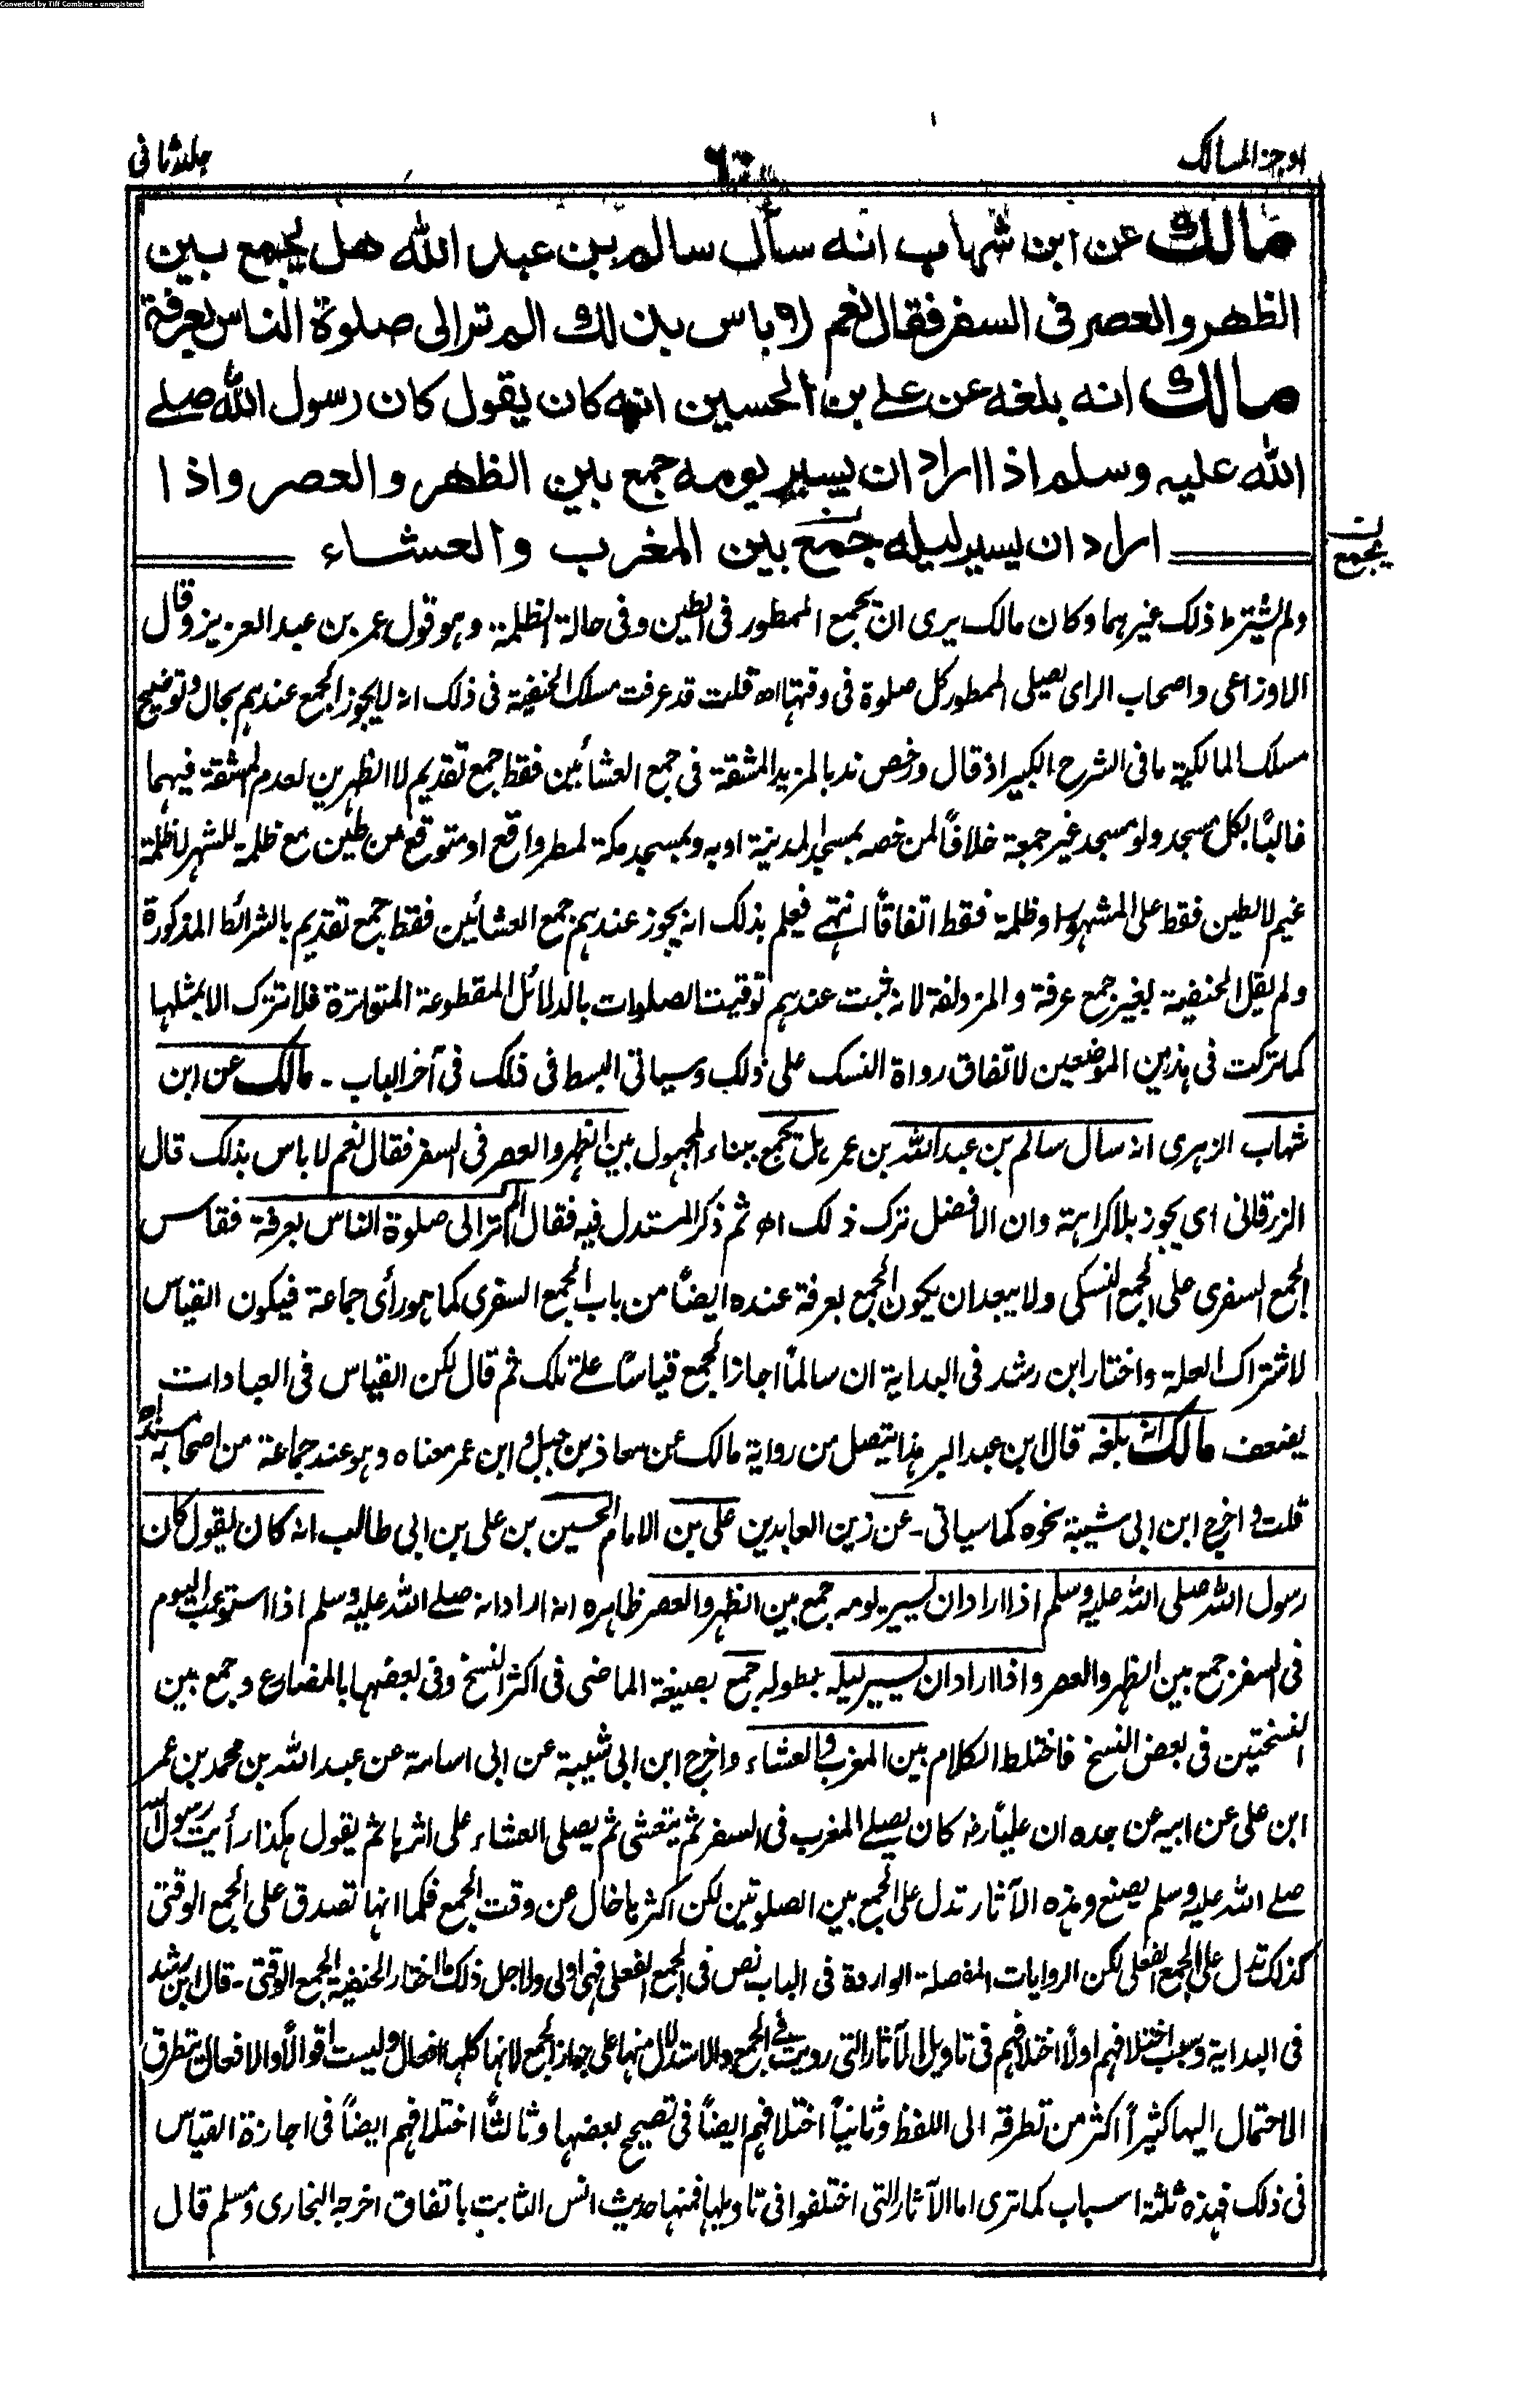 Converted by Tiff Combine - unregistered
اوجز المسالك
٦٠
جلد ثانی
مالك عن ابن شهاب انه سأل سالم بن عبد الله هل يجمع بين
الظهر والعصر فى السفر فقال نعم لا باس بذلك الم تر الى صلوة الناس بعرفة
مالك انه بلغه عن على بن الحسين انه كان يقول كان رسول الله صلے
الله عليه وسلم اذا اراد ان يسير يومه جمع بين الظهر والعصر واذا
اراد ان يسير ليله جمع بين المغرب والعشاء
ن
يجمع
ولم يشترط ذلك غيرهما وكان مالك يرى ان يجمع الممطور فى الطين وفى حالة الظلمة وهو قول عمر بن عبد العزيز وقال
الاوزاعى واصحاب الراى يصلى الممطور كل صلوة فى وقتها اھ قلت قد عرفت مسلك الحنفية فى ذلك انه لا يجوز الجمع عندهم بحال وتوضيح
مسلك المالكية ما فى الشرح الكبير اذ قال ورخص ندبا لمزيد المشقة فى جمع العشائين فقط جمع تقديم لا الظهرين لعدم المشقة فيهما
غالبًا بكل مسجد ولو مسجد غير جمعة خلافًا لمن خصه بمسجد المدينة او به وبمسجد مكة لمطر واقع او متوقع من طين مع ظلمة للشهر لا ظلمة
غيم لا لطين فقط على المشهور او ظلمة فقط اتفاقًا انتهے فعلم بذلك انه يجوز عندهم جمع العشائين فقط جمع تقديم بالشرائط المذكورة
ولم يقل الحنفية بغير جمع عرفة والمزدلفة لانه ثبت عندهم توقيت الصلوات بالدلائل المقطوعة المتواترة فلا تترك الا بمثلها
كما تركت فى هذين الموضعين لاتفاق رواة النسك على ذلك وسياتى البسط فى ذلك فى آخر الباب ـ مالك عن ابن
شهاب الزهرى انه سال سالم بن عبد الله بن عمر هل يجمع ببناء المجهول بين الظهر والعصر فى السفر فقال نعم لا باس بذلك قال
الزرقانى اى يجوز بلا كراهة وان الافضل ترك ذلك اھ ثم ذكر المستدل فيه فقال الم تر الى صلوة الناس بعرفة فقاس
الجمع السفرى على الجمع النسكى ولا يبعد ان يكون الجمع بعرفة عنده ايضًا من باب الجمع السفرى كما هو رأى جماعة فيكون القياس
لاشتراك العلة واختار ابن رشد فى البداية ان سالمًا اجاز الجمع قياسًا علے تلك ثم قال لكن القياس فى العبادات
يضعف مالك انه بلغه قال ابن عبد البر هذا يتصل من رواية مالك عن معاذ بن جبل و ابن عمر معناه وهو عند جماعة من اصحابه مسندًا اھ
قلت و اخرج ابن ابى شيبة نحوه كما سياتى ـ عن زين العابدين على بن الامام الحسين بن على بن ابى طالب انه كان يقول كان
رسول الله صلى الله عليه وسلم اذا اراد ان يسير يومه جمع بين الظهر والعصر ظاهره انه اراد انه صلے الله عليه وسلم اذا استوعب اليوم
فى السفر جمع بين الظهر والعصر واذا اراد ان يسير ليله بطوله جمع بصيغة الماضى فى اكثر النسخ وفى بعضها بالمضارع وجمع بين
النسختين فى بعض النسخ فاختلط الكلام بين المغرب والعشاء واخرج ابن ابى شيبة عن ابى اسامة عن عبد الله بن محمد بن عمر
ابن على عن ابيه عن جده ان عليًا رضـ كان يصلے المغرب فى السفر ثم يتعشى ثم يصلى العشاء على اثرها ثم يقول هكذا رأيت رسول الله
صلے الله عليه وسلم يصنع وهذه الآثار تدل على الجمع بين الصلوتين لكن اكثرها خال عن وقت الجمع فكما انها تصدق على الجمع الوقتى
كذلك تدل على الجمع الفعلى لكن الروايات المفصلة الواردة فى الباب نص فى الجمع الفعلى فهى اولى ولاجل ذلك ما اختار الحنفية الجمع الوقتى ـ قال ابن رشد
فى البداية وسبب اختلافهم اولًا اختلافهم فى تاويل الآثار التى رويت فى الجمع والاستدلال منها على جواز الجمع لانها كلها افعال وليست اقوالًا والافعال يتطرق
الاحتمال اليها كثيرًا اكثر من تطرقه الى اللفظ وثانيًا اختلافهم ايضًا فى تصحيح بعضها وثالثًا اختلافهم ايضًا فى اجازة القياس
فى ذلك فهذه ثلثة اسباب كما ترى اما الآثار التى اختلفوا فى تاويلها فمنها حديث انس الثابت باتفاق اخرجه البخارى ومسلم قال